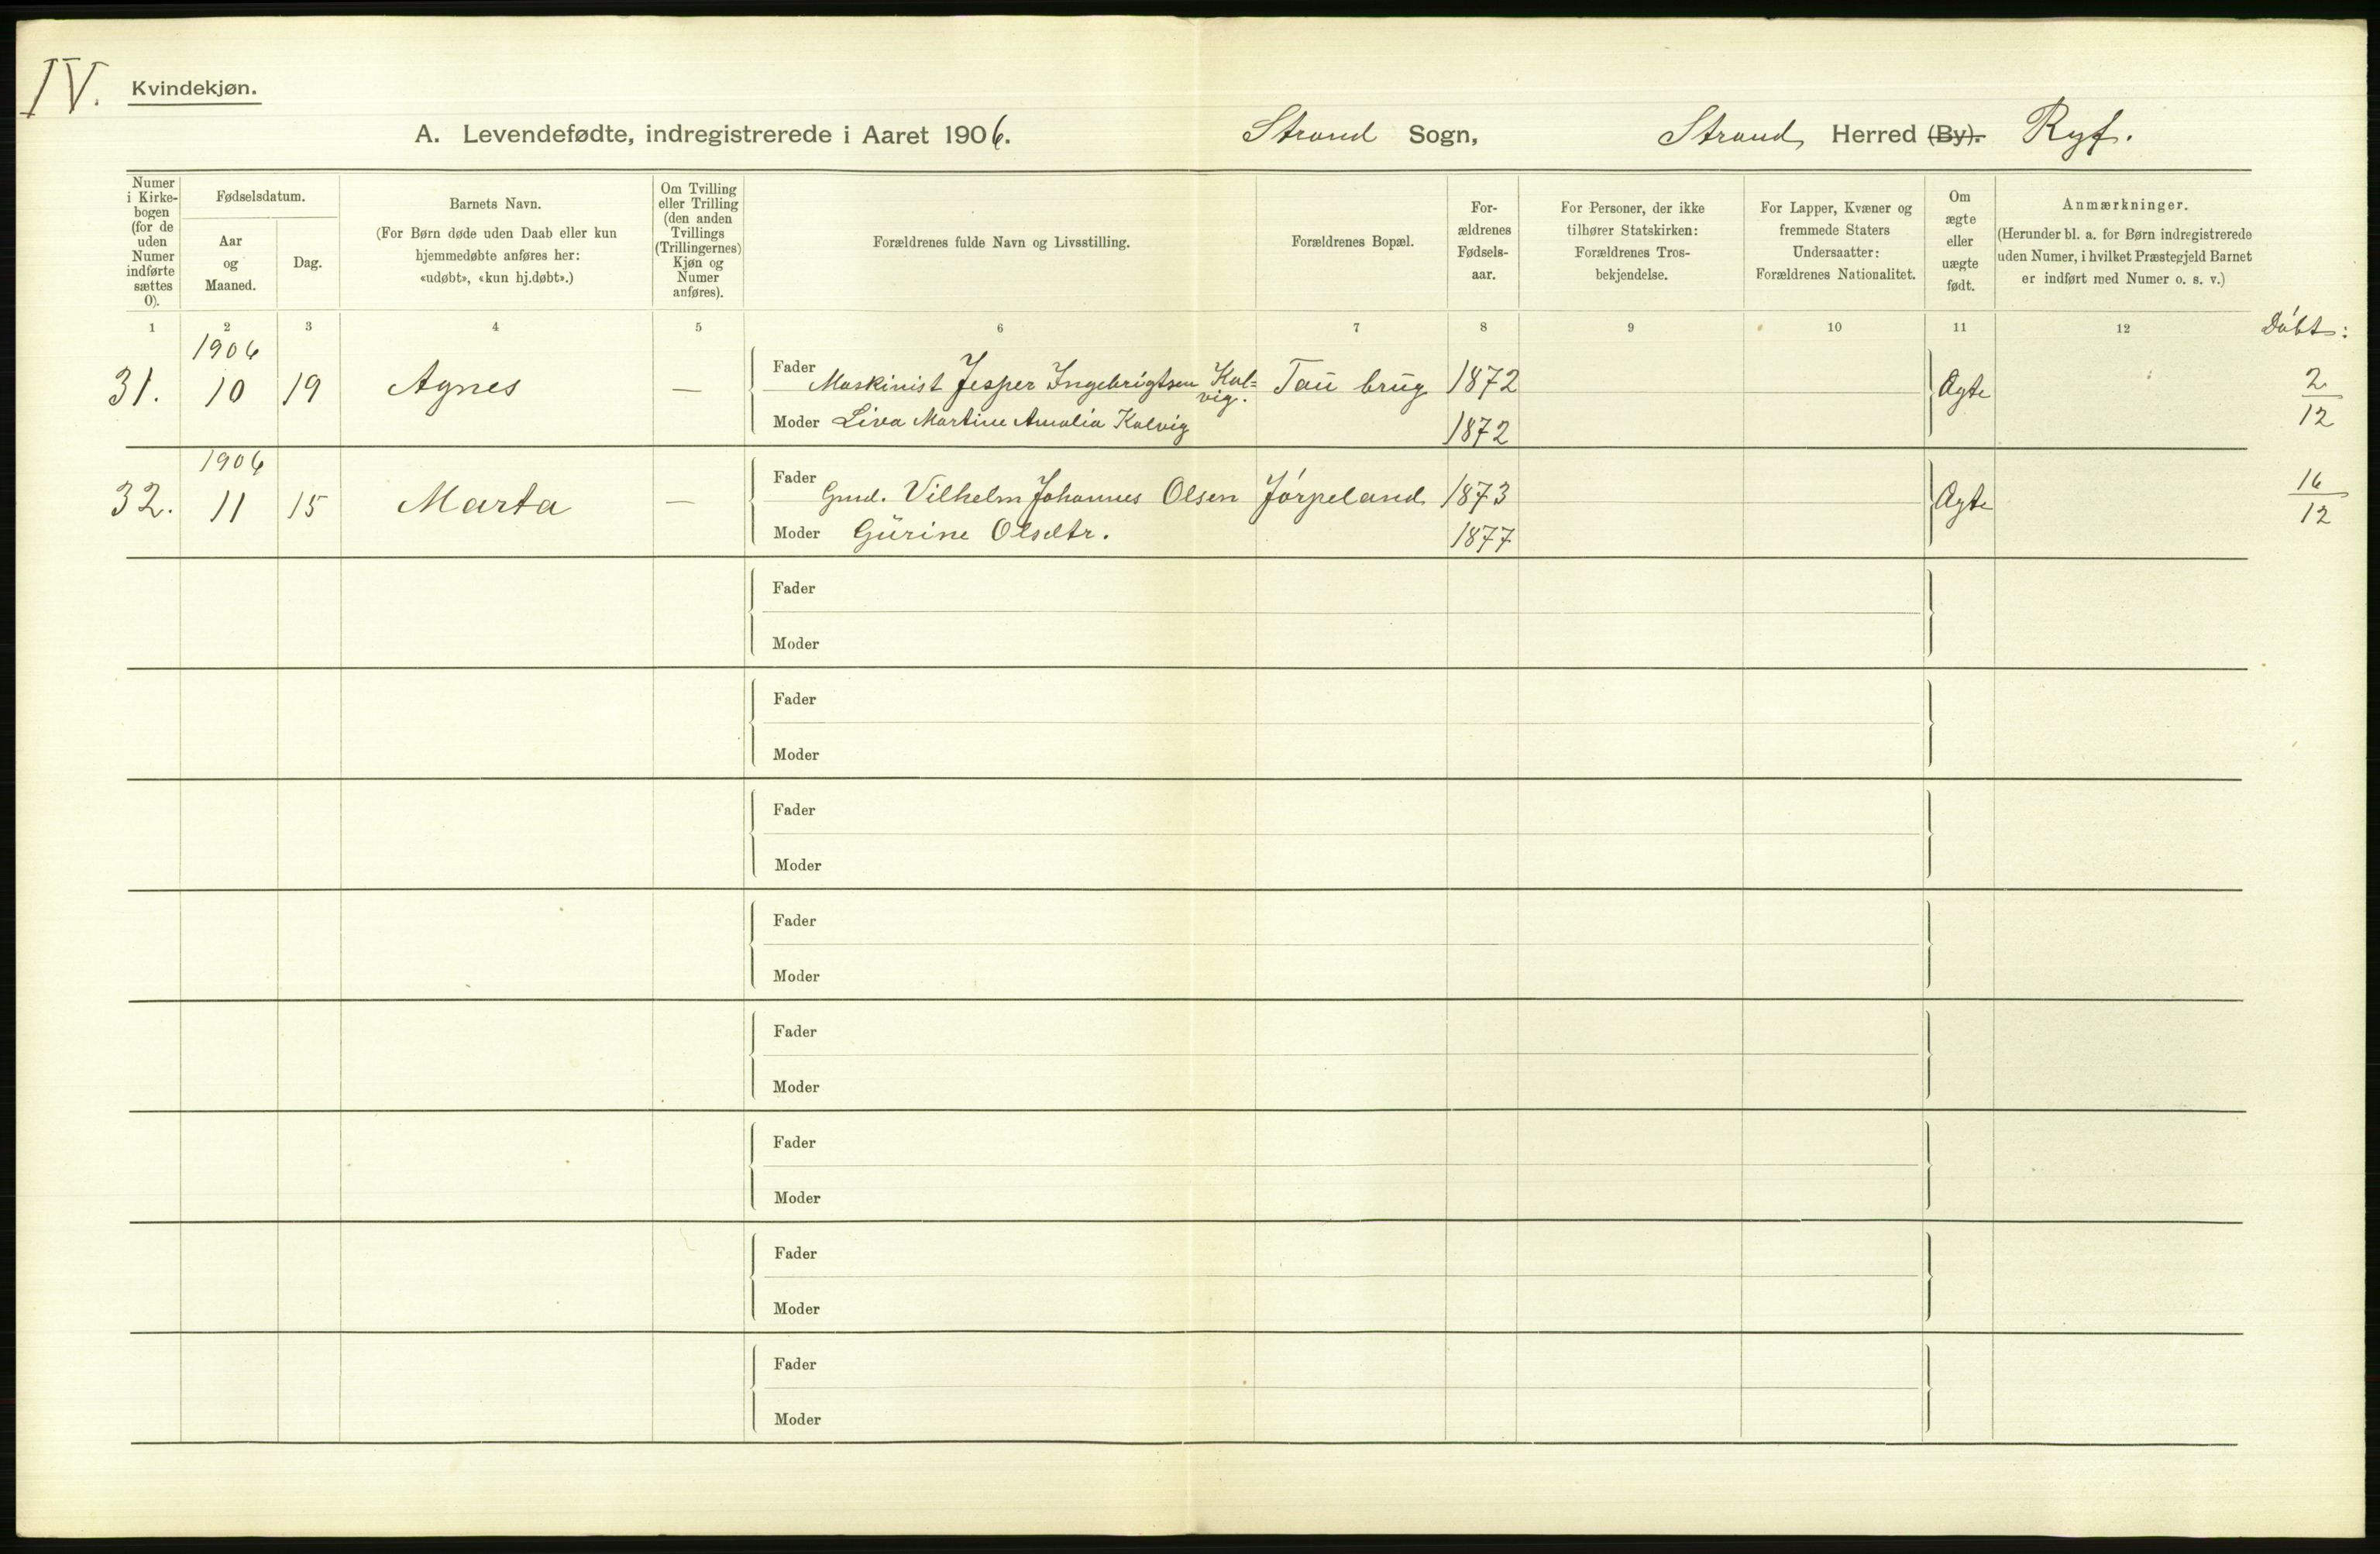 IV. Kvindekjøn.
A. Levendefødte, indregistrerede i Aaret 1906. Strand Sogn, Strand Herred (By). Ryf.
Numer i Kirke-bogen (for de uden Numer indførte sættes 0).
Fødselsdatum.
Aar og Maaned.
Dag.
Barnets Navn.
(For Børn døde uden Daab eller kun hjemmedøbte anføres her: «udøbt», «kun hj.døbt».)
Om Tvilling eller Trilling (den anden Tvillings (Trillingernes) Kjøn og Numer anføres).
Forældrenes fulde Navn og Livsstilling.
Forældrenes Bopæl.
For-ældrenes Fødsels-aar.
For Personer, der ikke tilhører Statskirken: Forældrenes Tros-bekjendelse.
For Lapper, Kvæner og fremmede Staters Undersaatter: Forældrenes Nationalitet.
Om ægte eller uægte født.
Anmærkninger.
(Herunder bl. a. for Børn indregistrerede uden Numer, i hvilket Præstegjeld Barnet er indført med Numer o. s. v.)
1 2 3 4 5 6 7 8 9 10 11 12 Døbt:
1906
31. 10 19 Agnes — Fader Maskinist Jesper Ingebrigtsen Kal=vig. Tau brug 1872 Ægte 2/12
Moder Liva Martine Amalia Kalvig 1872
1906
32. 11 15 Marta — Fader Gmd. Vilhelm Johannes Olsen Jørpeland 1873 Ægte 16/12
Moder Gurine Olsdtr. 1877
Fader
Moder
Fader
Moder
Fader
Moder
Fader
Moder
Fader
Moder
Fader
Moder
Fader
Moder
Fader
Moder